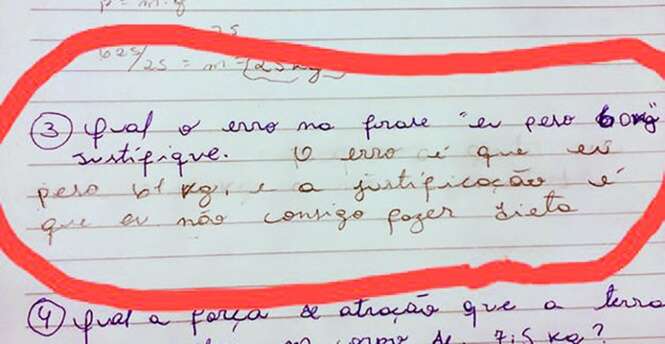 p = m. g
25
625/25 = m = 25 kg
③ Qual o erro na frase "eu peso 60kg"
justifique. O erro é que eu
peso 61 kg, e a justificação é
que eu não consigo fazer dieta
④ Qual a força de atração que a terra
um corpo de 7,5 kg?